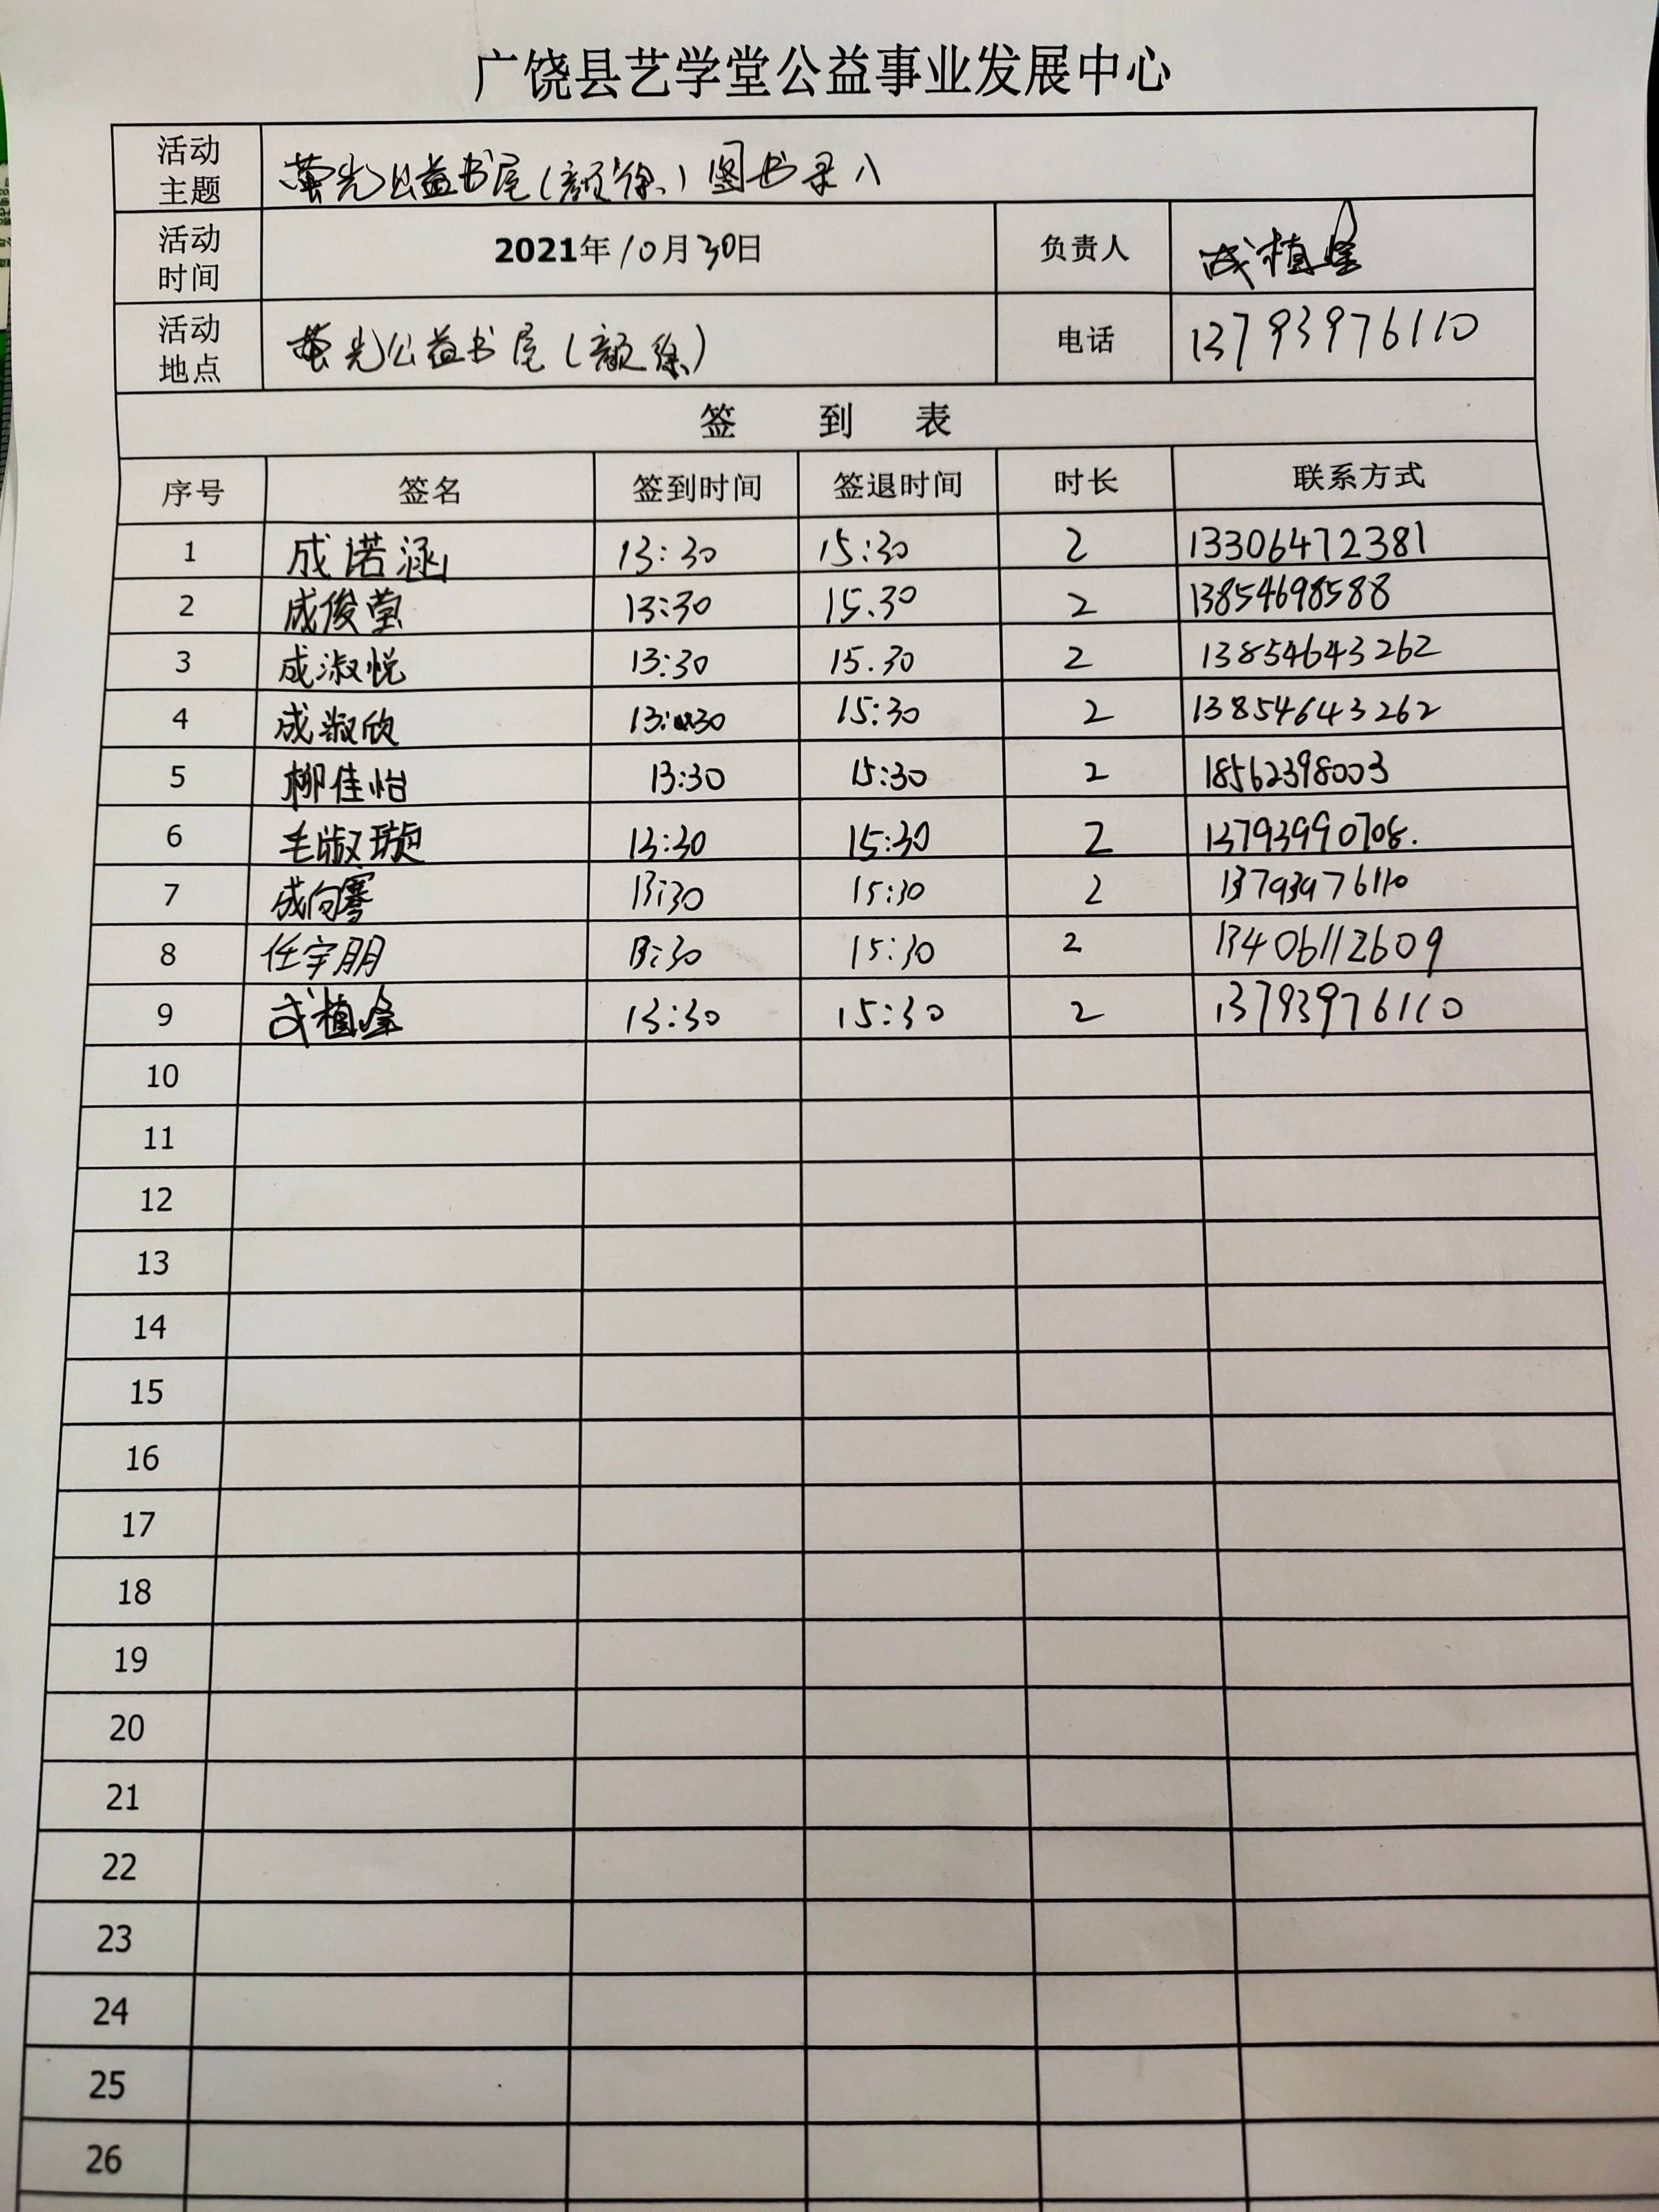 广饶县艺学堂公益事业发展中心
活动主题 萤光公益书屋(颜徐)图书录入
活动时间 2021年10月30日 负责人 成植峰
活动地点 萤光公益书屋(颜徐) 电话 13793976110
签 到 表
序号 签名 签到时间 签退时间 时长 联系方式
1 成诺涵 13:30 15:30 2 13306472381
2 成俊莹 13:30 15.30 2 13854698588
3 成淑悦 13:30 15.30 2 13854643262
4 成淑欣 13:30 15:30 2 13854643262
5 柳佳怡 13:30 15:30 2 18562398003
6 毛淑璇 13:30 15:30 2 13793990708.
7 成向骞 13:30 15:30 2 13793976110
8 任宇朋 13:30 15:30 2 13406112609
9 成植峰 13:30 15:30 2 13793976110
10
11
12
13
14
15
16
17
18
19
20
21
22
23
24
25
26